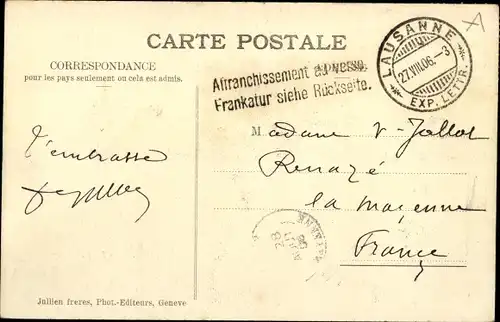 CARTE POSTALE
CORRESPONDANCE
pour les pays seulement ou cela est admis.
Affranchissement au verso.
Frankatur siehe Rückseite.
LAUSANNE
27.VIII.06.-3
EXP. LETTR.
t'embrasse
Madame V-Jallot
Renazé
la Mayenne
France
Jullien freres, Phot.-Editeurs, Geneve